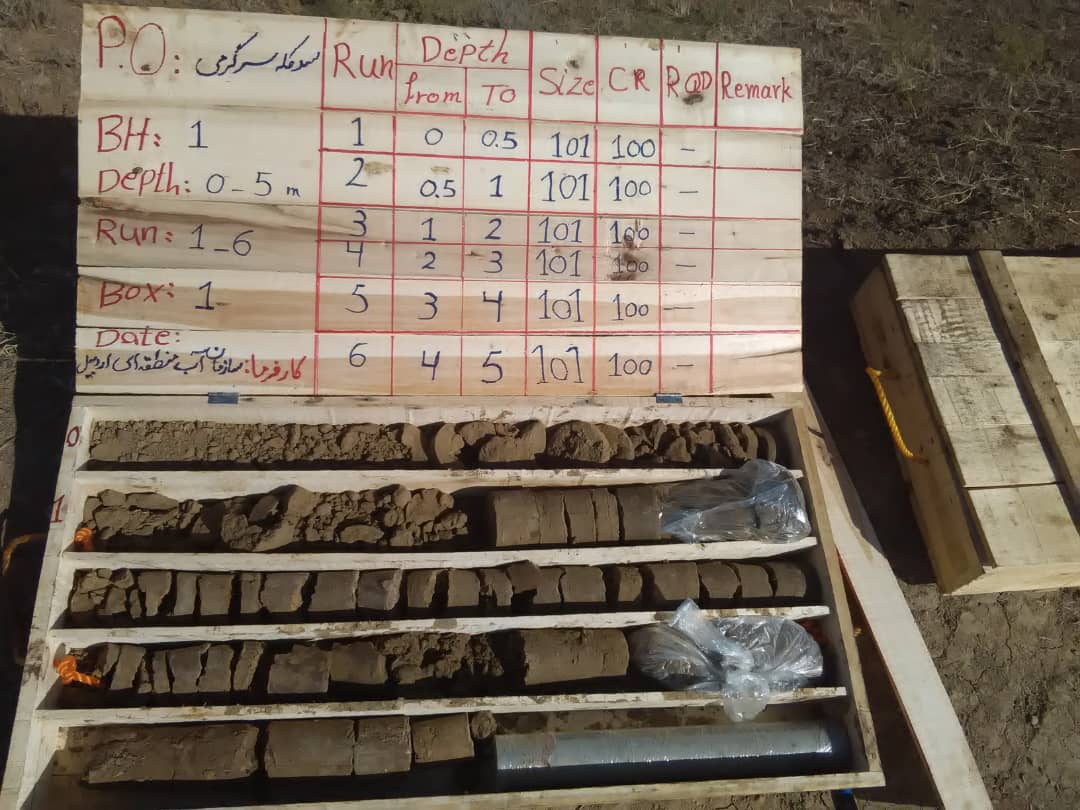 P.O: سد کله سرگرمی
BH: 1
Depth: 0-5 m
Run: 1-6
Box: 1
Date:
کارفرما: سازمان آب منطقه‌ای اردبیل
Run Depth Size CR RQD Remark
from To
1 0 0.5 101 100 -
2 0.5 1 101 100 -
3 1 2 101 100 -
4 2 3 101 100 -
5 3 4 101 100 -
6 4 5 101 100 -
0
1